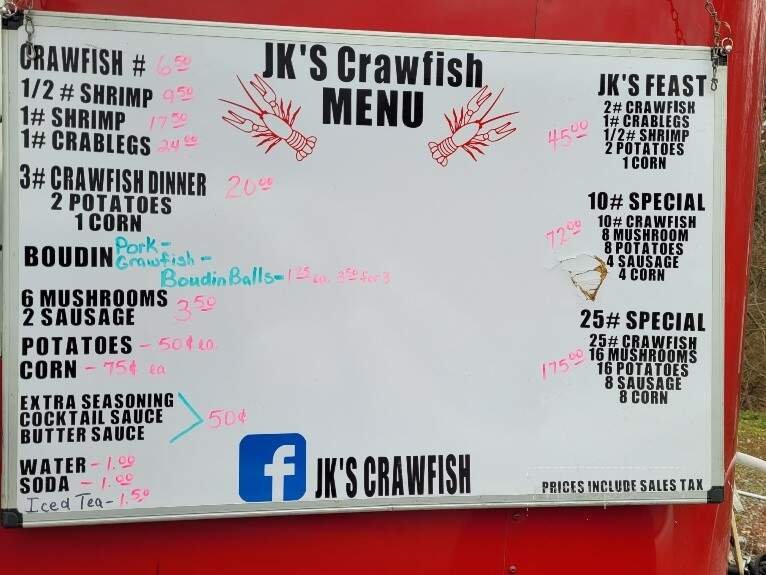 JK'S Crawfish
MENU
CRAWFISH # 6.50
1/2 # SHRIMP 9.50
1# SHRIMP 17.50
1# CRABLEGS 24.00
3# CRAWFISH DINNER 20.00
2 POTATOES
1 CORN
BOUDIN Pork-
Crawfish-
Boudin Balls-1.25 ea. 3.50 for 3
6 MUSHROOMS
2 SAUSAGE 3.50
POTATOES - 50¢ ea.
CORN - 75¢ ea
EXTRA SEASONING
COCKTAIL SAUCE 50¢
BUTTER SAUCE
WATER - 1.00
SODA - 1.00
Iced Tea - 1.50
JK'S FEAST
2# CRAWFISH
1# CRABLEGS
45.00 1/2# SHRIMP
2 POTATOES
1 CORN
10# SPECIAL
10# CRAWFISH
72.00 8 MUSHROOM
8 POTATOES
4 SAUSAGE
4 CORN
25# SPECIAL
25# CRAWFISH
175.00 16 MUSHROOMS
16 POTATOES
8 SAUSAGE
8 CORN
f JK'S CRAWFISH
PRICES INCLUDE SALES TAX